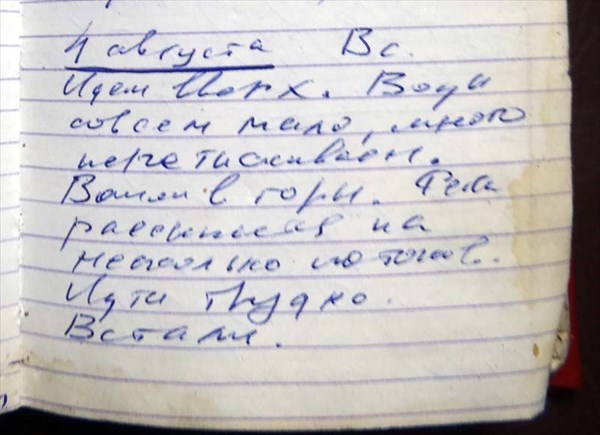 4 августа Вс.
Идем Вверх. Воды
совсем мало, много
перетаскиваем.
Вошли в горы. Река
рассыпается на
несколько потоков..
Идти трудно.
Встали.